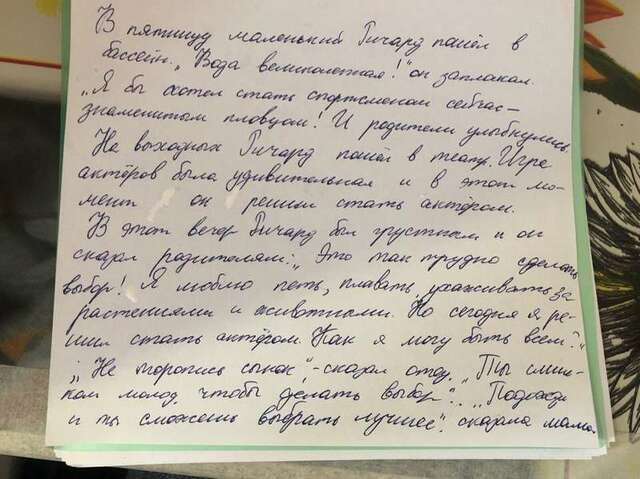 В пятницу маленький Ричард пошёл в
бассейн. „Вода великолепная!" он заплакал.
„Я бы хотел стать спортсменом сейчас –
знаменитым пловцом! И родители улыбнулись.
На выходных Ричард пошёл в театр. Игра
актёров была удивительная и в этот мо-
мент он решил стать актёром.
В этот вечер Ричард был грустным и он
сказал родителям: „Это так трудно сделать
выбор! Я люблю петь, плавать, ухаживать за
растениями и животными. Но сегодня я ре-
шил стать актёром. Как я могу быть всем?"
„Не торопись сынок", - сказал отец. „Ты слиш-
ком молод, чтобы делать выбор". „Подожди
и ты сможешь выбрать лучшее", сказала мама.